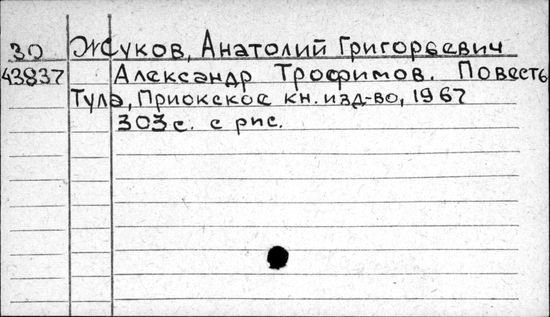 30 Жуков, Анатолий Григорьевич
43837 Александр Трофимов. Повесть
Тула, Приокское кн. изд-во, 1967
303 с. с рис.